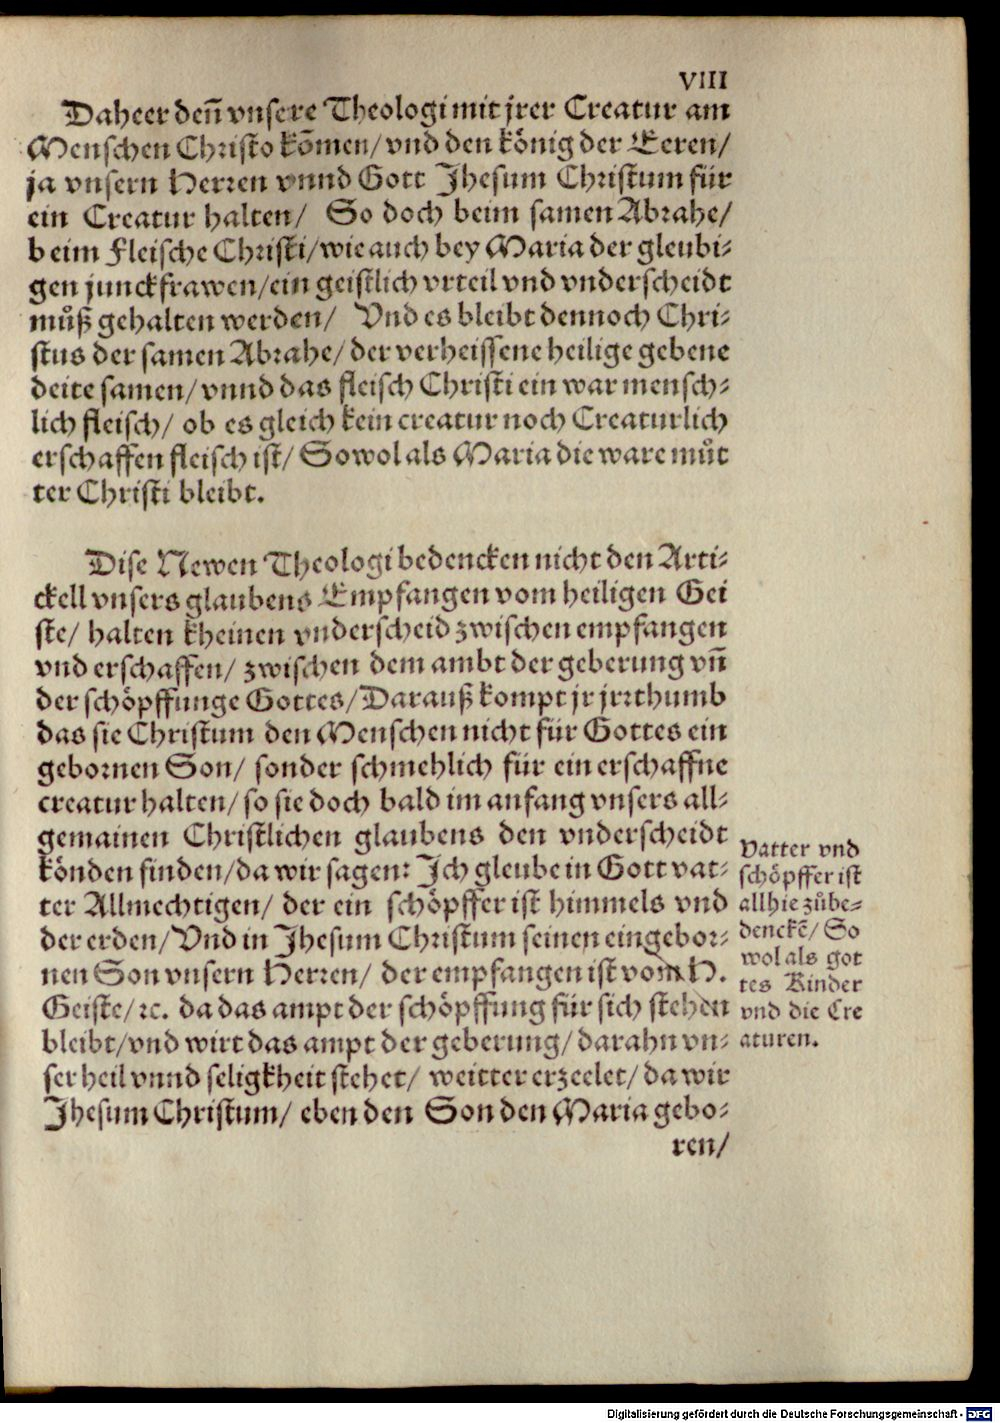 VIII
Daheer deñ vnsere Theologi mit jrer Creatur am
Menschen Christo kõmen/ vnd den könig der Eeren/
ja vnsern Herren vnnd Gott Jhesum Christum für
ein Creatur halten/ So doch beim samen Abrahe/
beim Fleische Christi/ wie auch bey Maria der gleubi-
gen junckfrawen/ ein geistlich vrteil vnd vnderscheidt
muͦß gehalten werden/ Vnd es bleibt dennoch Chri-
stus der samen Abrahe/ der verheissene heilige gebene
deite samen/ vnnd das fleisch Christi ein war mensch-
lich fleisch/ ob es gleich kein creatur noch Creaturlich
erschaffen fleisch ist/ Sowol als Maria die ware muͦt
ter Christi bleibt.
Dise Newen Theologi bedencken nicht den Arti-
ckell vnsers glaubens Empfangen vom heiligen Gei
ste/ halten kheinen vnderscheid zwischen empfangen
vnd erschaffen/ zwischen dem ambt der geberung vñ
der schöpffunge Gottes/ Darauß kompt jr jrrthumb
das sie Christum den Menschen nicht für Gottes ein
gebornen Son/ sonder schmehlich für ein erschaffne
creatur halten/ so sie doch bald im anfang vnsers all-
gemainen Christlichen glaubens den vnderscheidt
könden finden/ da wir sagen: Ich gleube in Gott vat-
ter Allmechtigen/ der ein schöpffer ist himmels vnd
der erden/ Vnd in Jhesum Christum seinen eingebor-
nen Son vnsern Herren/ der empfangen ist vom H.
Geiste/ ꝛc. da das ampt der schöpffung für sich stehen
bleibt/ vnd wirt das ampt der geberung/ darahn vn-
ser heil vnnd seligkheit stehet/ weitter erzeelet/ da wir
Jhesum Christum/ eben den Son den Maria gebo-
ren/
Vatter vnd
schöpffer ist
allhie zuͦbe-
denckẽ/ So
wol als got
tes Kinder
vnd die Cre
aturen.
Digitalisierung gefördert durch die Deutsche Forschungsgemeinschaft - DFG